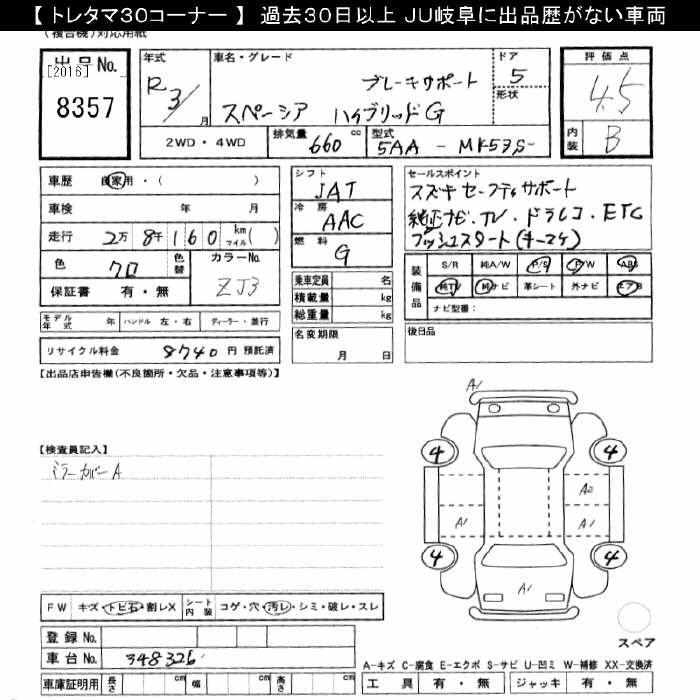 【 トレタマ30コーナー 】 過去30日以上 JU岐阜に出品歴がない車両
(複合機)対応用紙
出品No.
[2016]
8357
年式
R3/月
車名・グレード
ブレーキサポート
スペーシア ハイブリッドG
ドア
5
形状
評価点
4.5
内装
B
2WD・4WD
排気量
660 cc
型式
5AA - MK53S-
車歴 自家用・( )
車検 年 月
走行 2万 8千 160 km(マイル)
色 クロ 色替
カラーNo.
ZJ3
保証書 有・無
モデル年式 年 ハンドル 左・右 ディーラー・並行
リサイクル料金 8740 円 預託済
シフト
IAT
冷房
AAC
燃料
G
乗車定員 名
積載量 kg
総重量 kg
名変期限
月 日
セールスポイント
スズキセーフティサポート
純正ナビ.TV.ドラレコ.ETC
プッシュスタート(キー2ケ)
装備品
S/R 純A/W P/S P/W ABS
純TV 純ナビ 革シート 外ナビ エアB
ナビ型番:
後日品
【出品店申告欄(不良箇所・欠品・注意事項等)】
【検査員記入】
ミラーカバーA
A1
4
4
A2
A1
A1
4
4
A1
スペア
FW キズ・トビ石・割レX シート内装 コゲ・穴・汚レ・シミ・破レ・スレ
登録 No.
車台 No. 348326
車庫証明用 長さ cm 幅 cm 高さ cm
A-キズ C-腐食 E-エクボ S-サビ U-凹ミ W-補修 XX-交換済
工具 有・無 ジャッキ 有・無